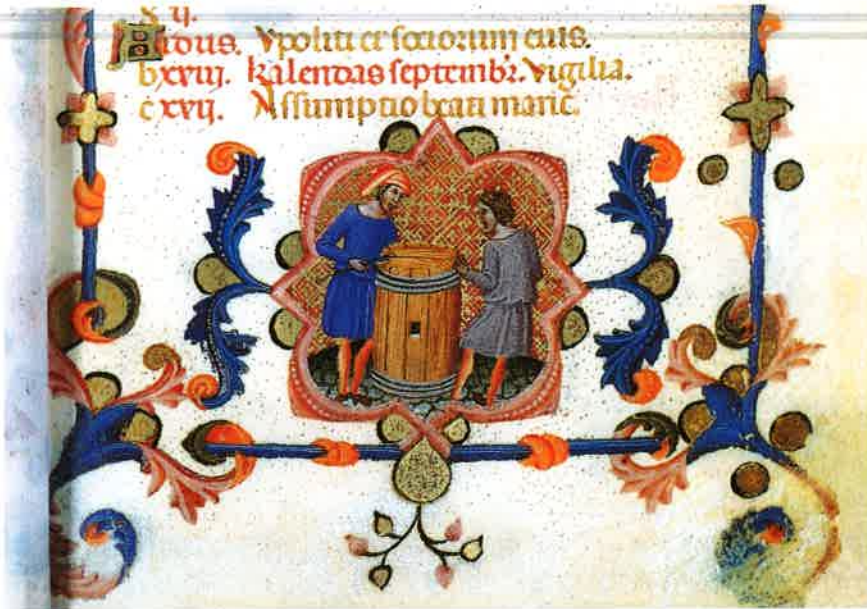 Idus. Ypoliti et sociorum eius.
b xviij. kalendas septembr. Vigilia.
c xvij. Assumptio beati marie.